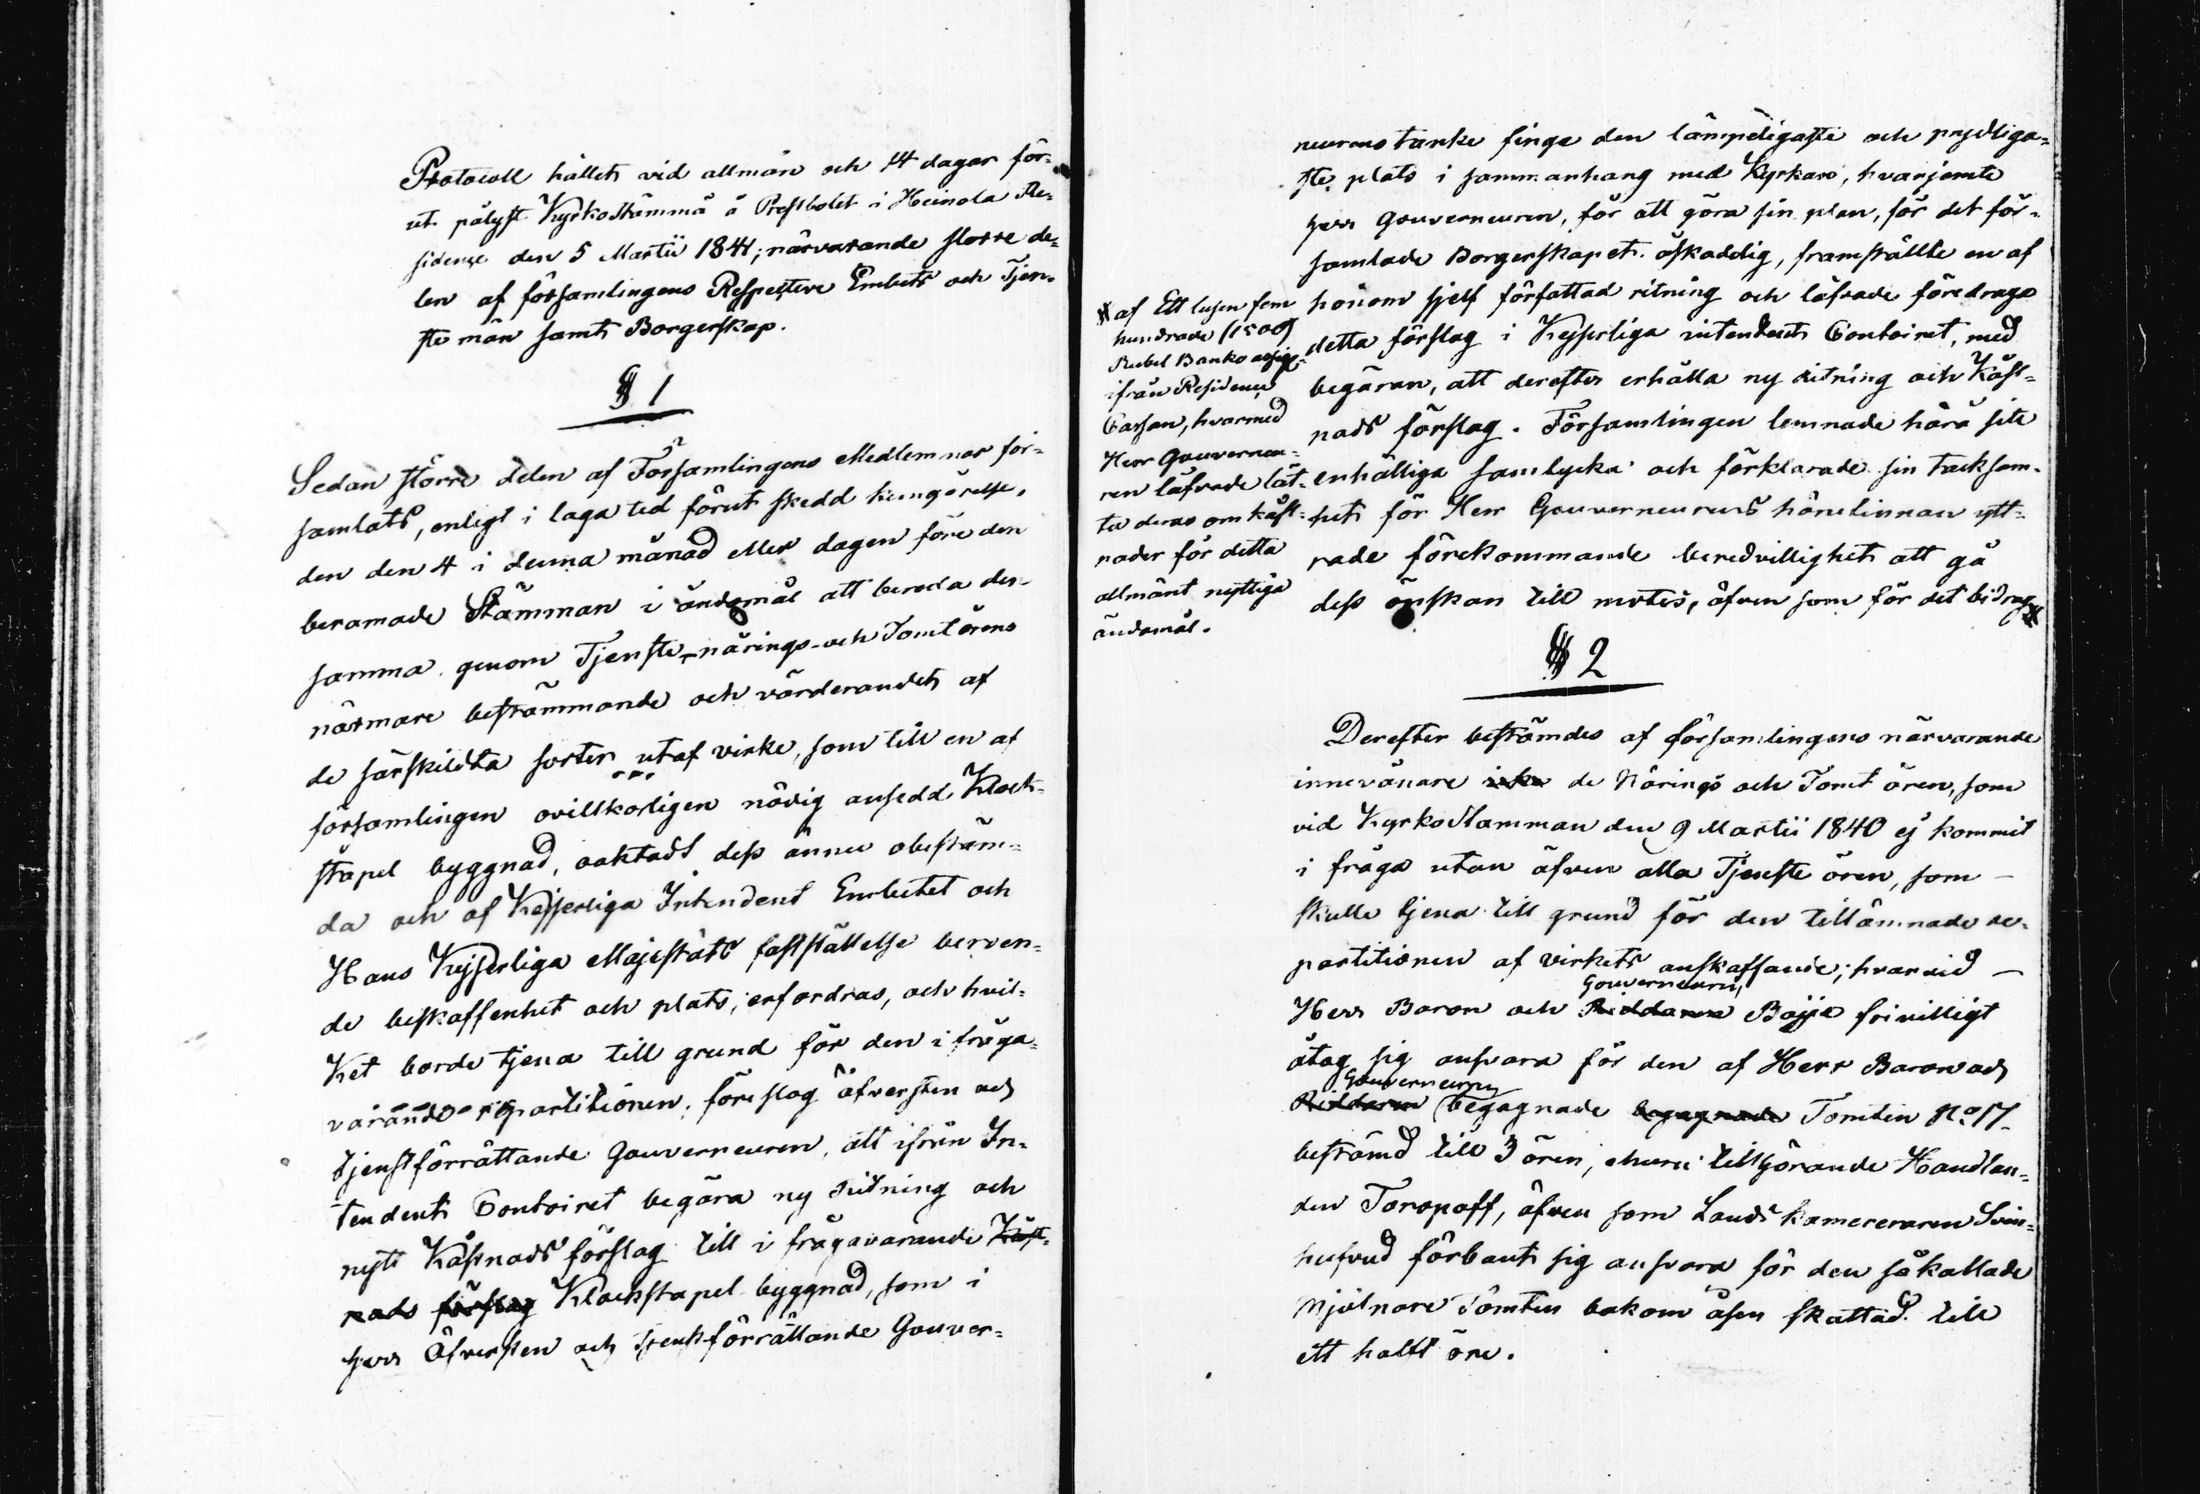 Protocoll hållet vid allmän och 14 dagar för-
ut pålyst Kyrkostämma å Prestbolet i Heinola Re-
sidence den 5 Martii 1841; närvarande större de-
len af församlingens Respective Embets och Tjen-
ste män samt Borgerskap.
§ 1
Sedan större delen af Församlingens Medlemmar för-
samlats, enligt i laga tid förut skedd kungörelse,
den den 4 i denna månad eller dagen före den
beramade Stämman i ändamål att bereda den-
samma genom Tjenste-, närings- och Tomtörens
närmare bestämmande och värderandet af
de särskildta sorter utaf virke, som till en af
församlingen ovillkorligen nödig ansedd Klock-
stapel byggnad, oaktadt dess ännu obestäm-
da och af Kejserliga Intendent Embetet och
Hans Kejserliga Majestäts fastställelse beroen-
de beskaffenhet och plats, erfordras, och hvil-
ket borde tjena till grund för den i fråga-
varande repartitionen, föreslog Öfversten och
tjenstförrättande Gouverneuren, att ifrån In-
tendents Contoiret begära ny ritning och
nytt Kåstnads förslag till i frågavarande Kåst-
nads förslag Klockstapel byggnad, som i
Herr Öfversten och tjenstförrättande Gouver-
neurens tanke finge den lämpeligaste och prydliga-
ste plats i sammanhang med Kyrkan, hvarjemte
Herr Gouverneuren, för att göra sin plan, för det för-
samlade Borgerskapet åskådlig, framställte en af
honom sjelf författad ritning och låfvade föredraga
detta förslag i Kejserliga intendents Contoiret, med
begäran, att derefter erhålla ny ritning och Kåst-
nads förslag. Församlingen lemnade härå sitt
enhälliga samtycke och förklarade sin tacksam-
het för Herr Gouverneurens härutinnan ytt-
rade förekommande beredvillighet att gå
dess önskan till mötes, äfven som för det bidrag #
# af Ett tusen fem
hundrade (1500)
Rubel Banko assign.
ifrån Residence
Cassan, hvarmed
Herr Gouverneu-
ren låfvade lät-
ta deras omkåst-
nader för detta
allmänt nyttiga
ändamål.
§ 2
Derefter bestämdes af församlingens närvarande
innevånare icke de Närings och Tomt ören, som
vid Kyrkostämman den 9 Martii 1840 ej kommit
i fråga utan äfven alla Tjenste ören, som
skulle tjena till grund för den tillämnade re-
partitionen af virkets anskaffande; hvarvid
Herr Baron och Riddaren Gouverneuren, Boije frivilligt
åtog sig ansvara för den af Herr Baron och
Riddaren Gouverneuren begagnade begagnade Tomten No 17
bestämd till 3 ören, ehuru tillhörande Handlan-
den Toropoff, äfven som Lands kamereraren Svin-
hufvud förbant sig ansvara för den såkallade
Mjölnare Tomten bakom åsen skattad till
ett halft öre.